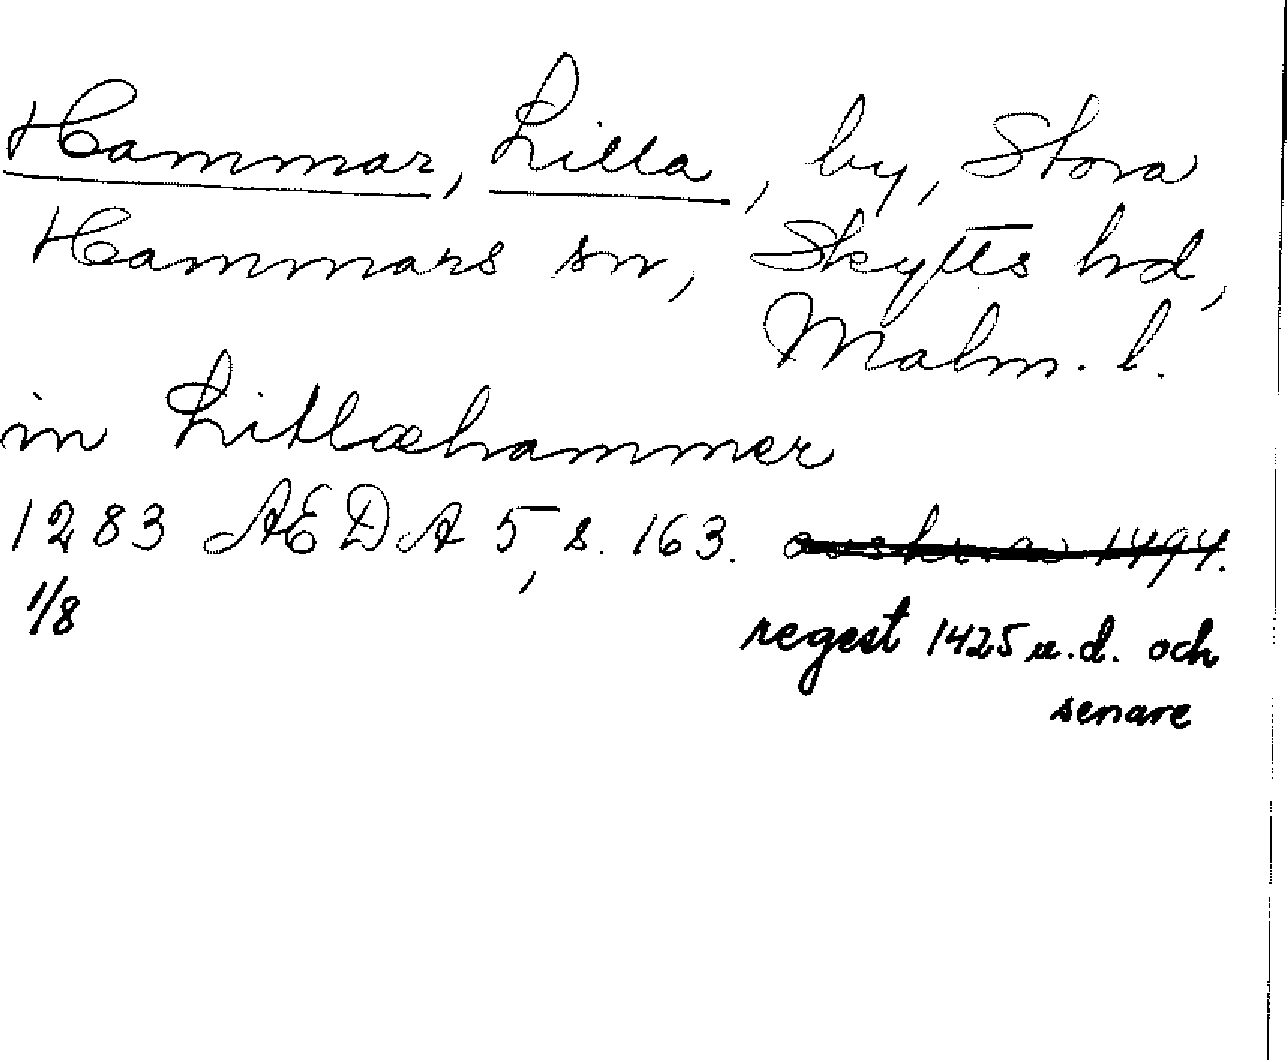 Hammar, Lilla, by, Stora
Hammars sn, Skytts hd,
Malm. l.
in Litlæhammer
1283 ÆDA 5, s. 163. avskr. a 1494.
1/8
regest 1425 u.d. och
senare